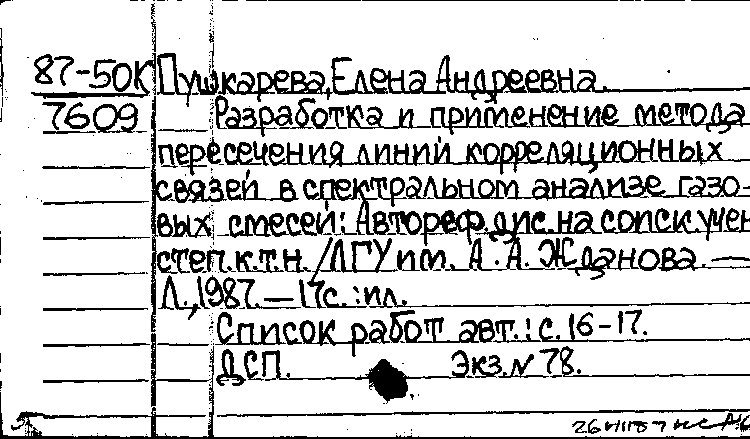 87-50К Пушкарева, Елена Андреевна.
7609 Разработка и применение метода
пересечения линий корреляционных
связей в спектральном анализе газо-
вых смесей: Автореф. дис. на соиск. учен.
степ. к.т.н. /ЛГУ им. А. А. Жданова. —
Л., 1987. — 17с. : ил.
Список работ авт.: с. 16-17.
ДСП. Экз. № 78.